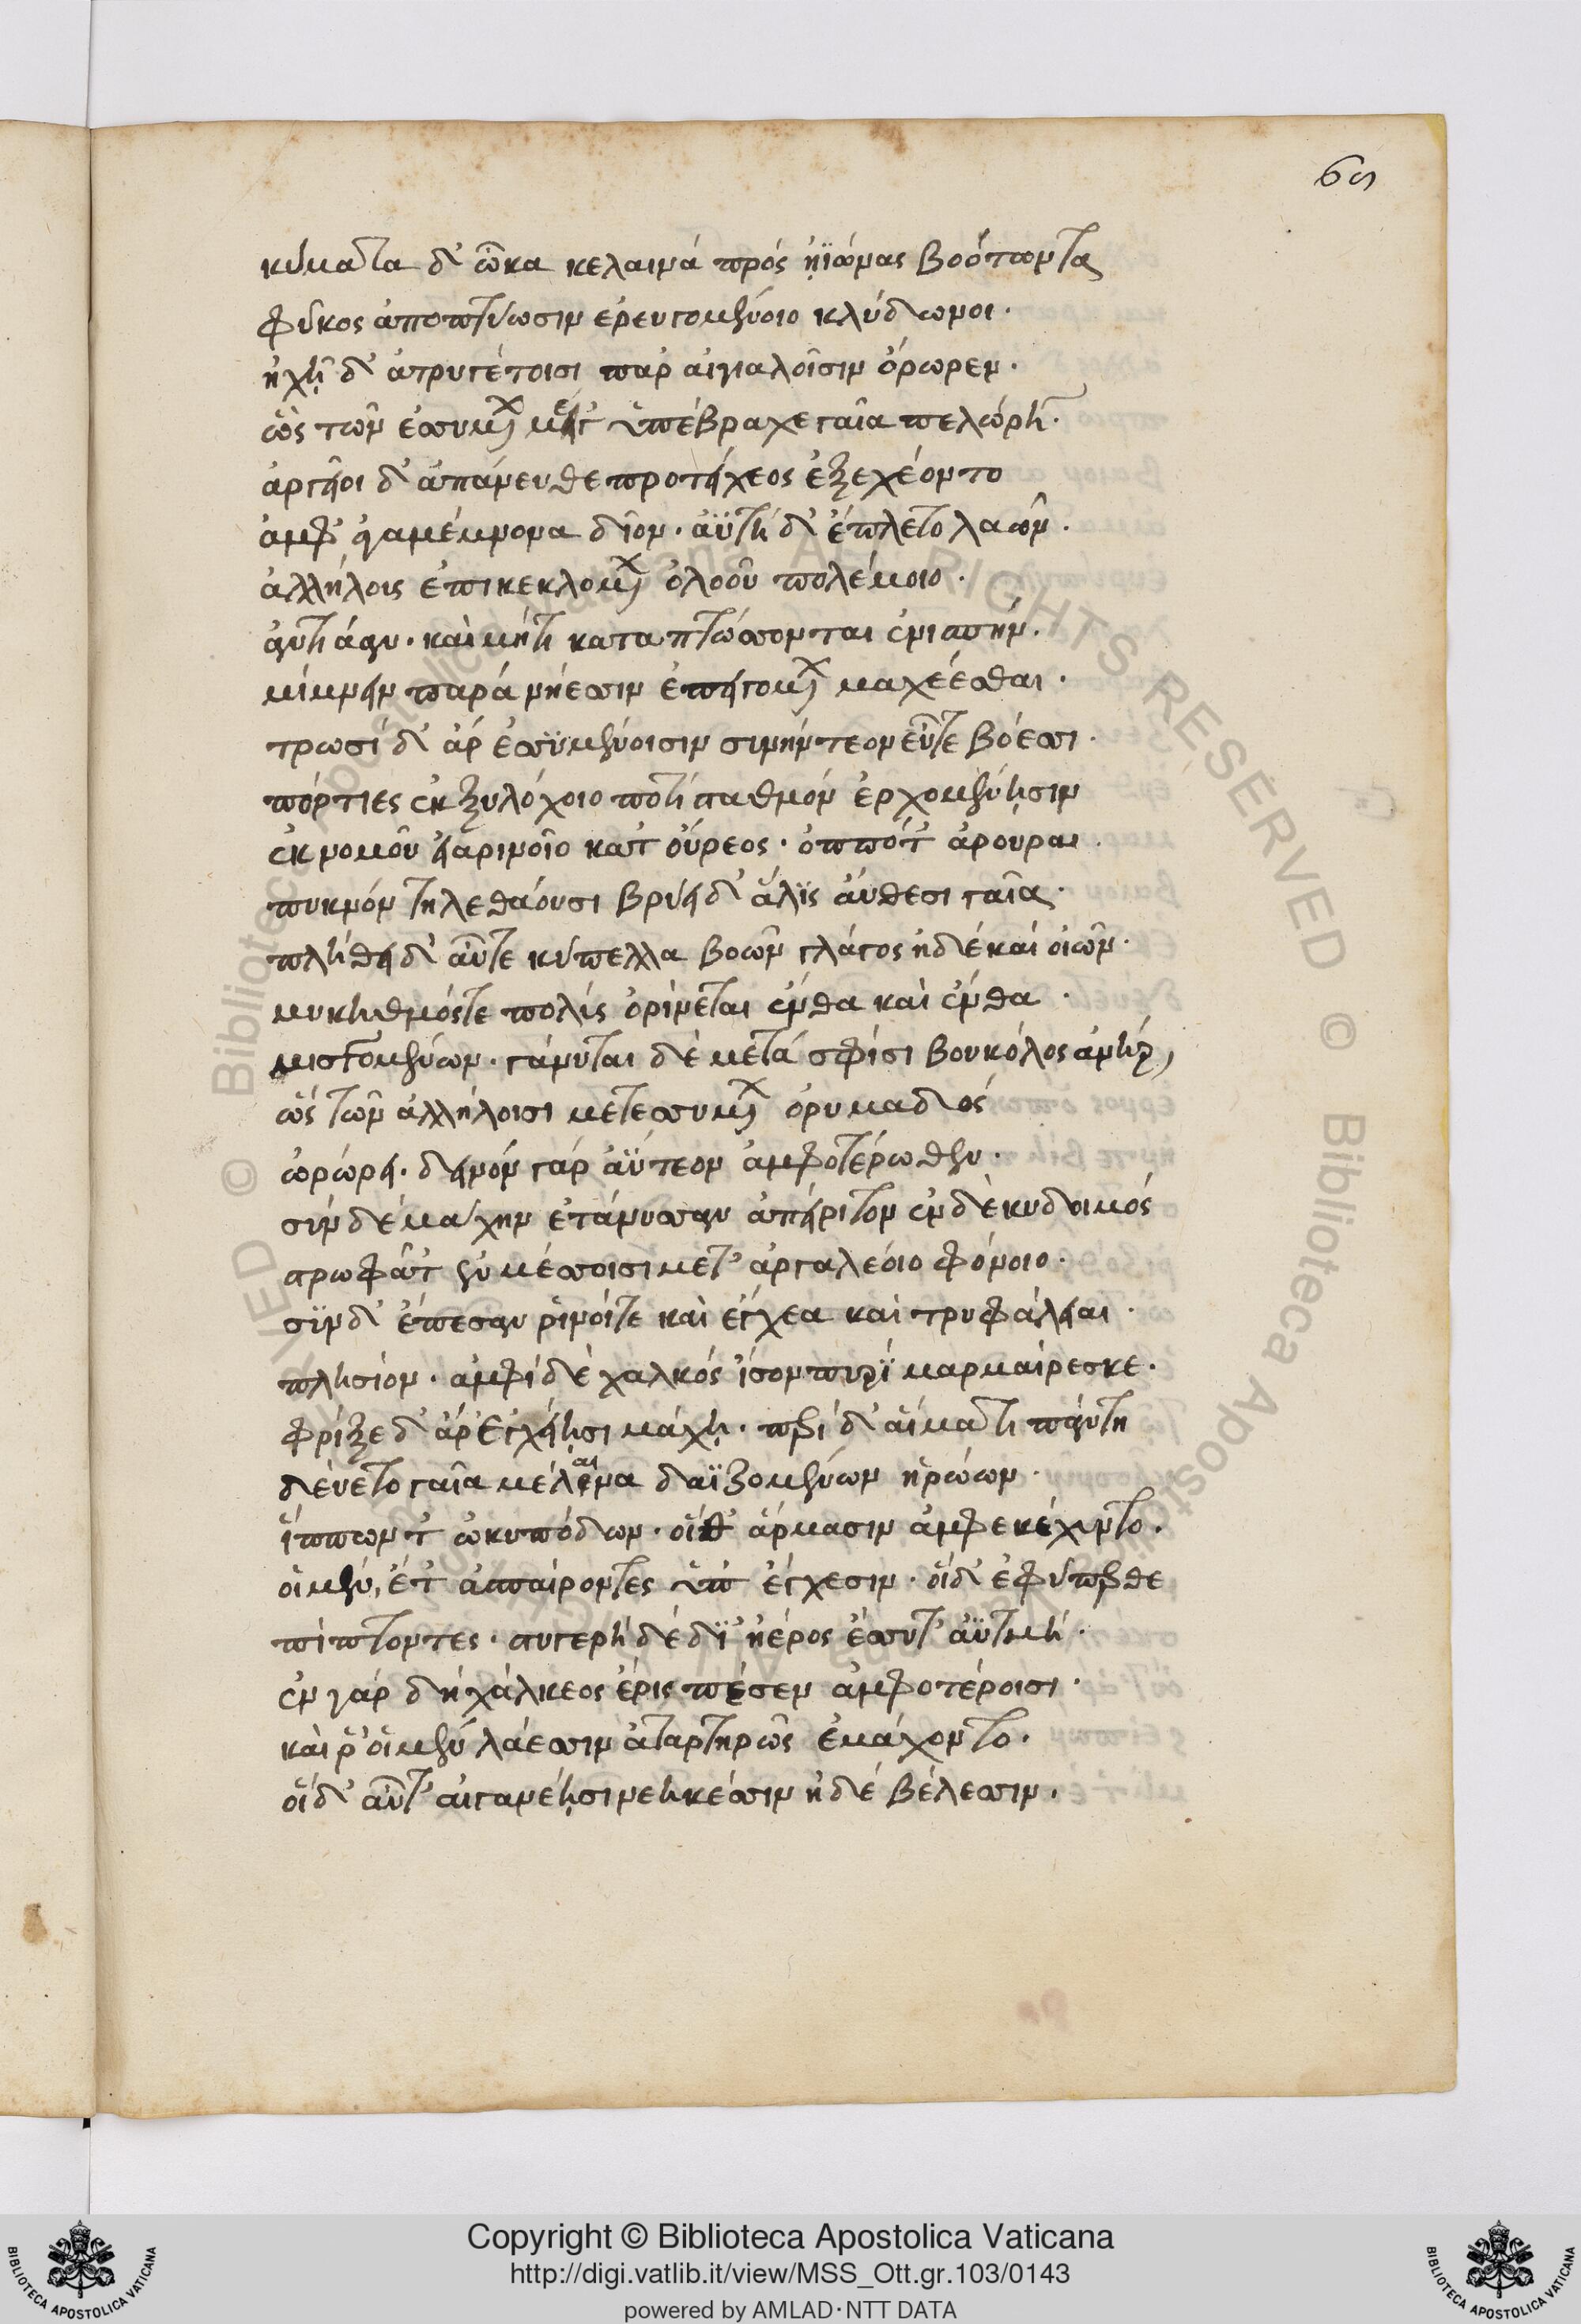 69
κύματα δ' ὦκα κελαινά πρός ἠϊόνας βοόωντα
φῦκος ἀποπτύωσιν ἐρευγομένοιο κλύδωνοι·
ἠχῇ δ' ἀτρυγέτοισι παρ αἰγιαλοῖσιν ὄρωρεν·
ὣς τῶν ἐσσυμ μέγ ὑπέβραχε γαῖα πελώρη·
ἀργεῖοι δ' ἀπάνευθε προτείχεος ἐξεχέοντο
ἀμφ' ἀγαμέμνονα δῖον· ἀϋτή δ' ἔπλετο λαῶν·
ἀλλήλοις ἐπικεκλομ ὀλοοῦ πολέμοιο·
ἀντιάαν· καὶ μήτι καταπτώσσονται ἐνιπήν·
μίμνειν παρά νήεσσιν ἐπειγομ μαχέεσθαι·
τρωσί δ' ἀρ ἐσσϋμένοισιν συνήντεον εὖτε βόεσσι·
πόρτιες ἐκ ξυλόχοιο ποτί σταθμόν ἐρχομένῃσιν
ἐκ νομοῦ εἰαρινοῖο κατ οὔρεος· ὁππότ ἄρουραι·
πυκνόν τηλεθάουσι βρύει δ' ἅλϊς ἄνθεσι γαῖα·
πλήθει δ' αὖτε κύπελλα βοῶν γλάγος ἠδέ καί οἰῶν·
μυκηθμόςτε πολύς ὀρίνεται ἔνθα καὶ ἔνθα·
μισγομένων· γάνυται δὲ μετά σφίσι βουκόλος ἀνήρ,
ὣς τῶν ἀλλήλοισι μετεσσυμ ὀρυμαδός
ὠρώρει· δεινόν γάρ ἀΰτεον ἀμφοτέρωθεν·
σύν δέ μάχην ἐτάνυσσαν ἀπείριτον ἐν δὲ κυδοιμός
στρωφᾶτ ἐν μέσσοισι μετ' ἀργαλέοιο φόνοιο·
σϋν δ' ἔπεσαν ῥινοίτε καὶ ἔγχεα καὶ τρυφάλειαι·
πλησίον· ἀμφί δὲ χαλκός ἶσον πυρϊ μαρμαίρεσκε·
φρίξε δ' ἀρ ἐγχείῃσι μάχῃ· περί δ' αἵματι πάντη
δεύετο γαῖα μέλαινα δαϊζομένων ἡρώων·
ἵππων τ ὠκυπόδων· οἵθ ἅρμασιν ἀμφεκέχυντο·
οἱ μέν, ἔτ ἀσπαίροντες ὑπ ἔγχεσιν· οἵδ' ἐφύπερθε
πίπτοντες· στυγερή δέ δϊ' ἠέρος ἔσσυτ' ἀϋτμή·
ἐν γάρ δή χάλκεος ἔρις πέσεν ἀμφοτέροισι·
καὶ ῥ' οἱ μέν λάεσσιν ἀταρτηρῶς ἐμάχοντο·
οἵδ' αὖτ' αἰγανέῃσι νεηκέσιν ἠδέ βέλεσσιν·
Copyright © Biblioteca Apostolica Vaticana
http://digi.vatlib.it/view/MSS_Ott.gr.103/0143
powered by AMLAD·NTT DATA